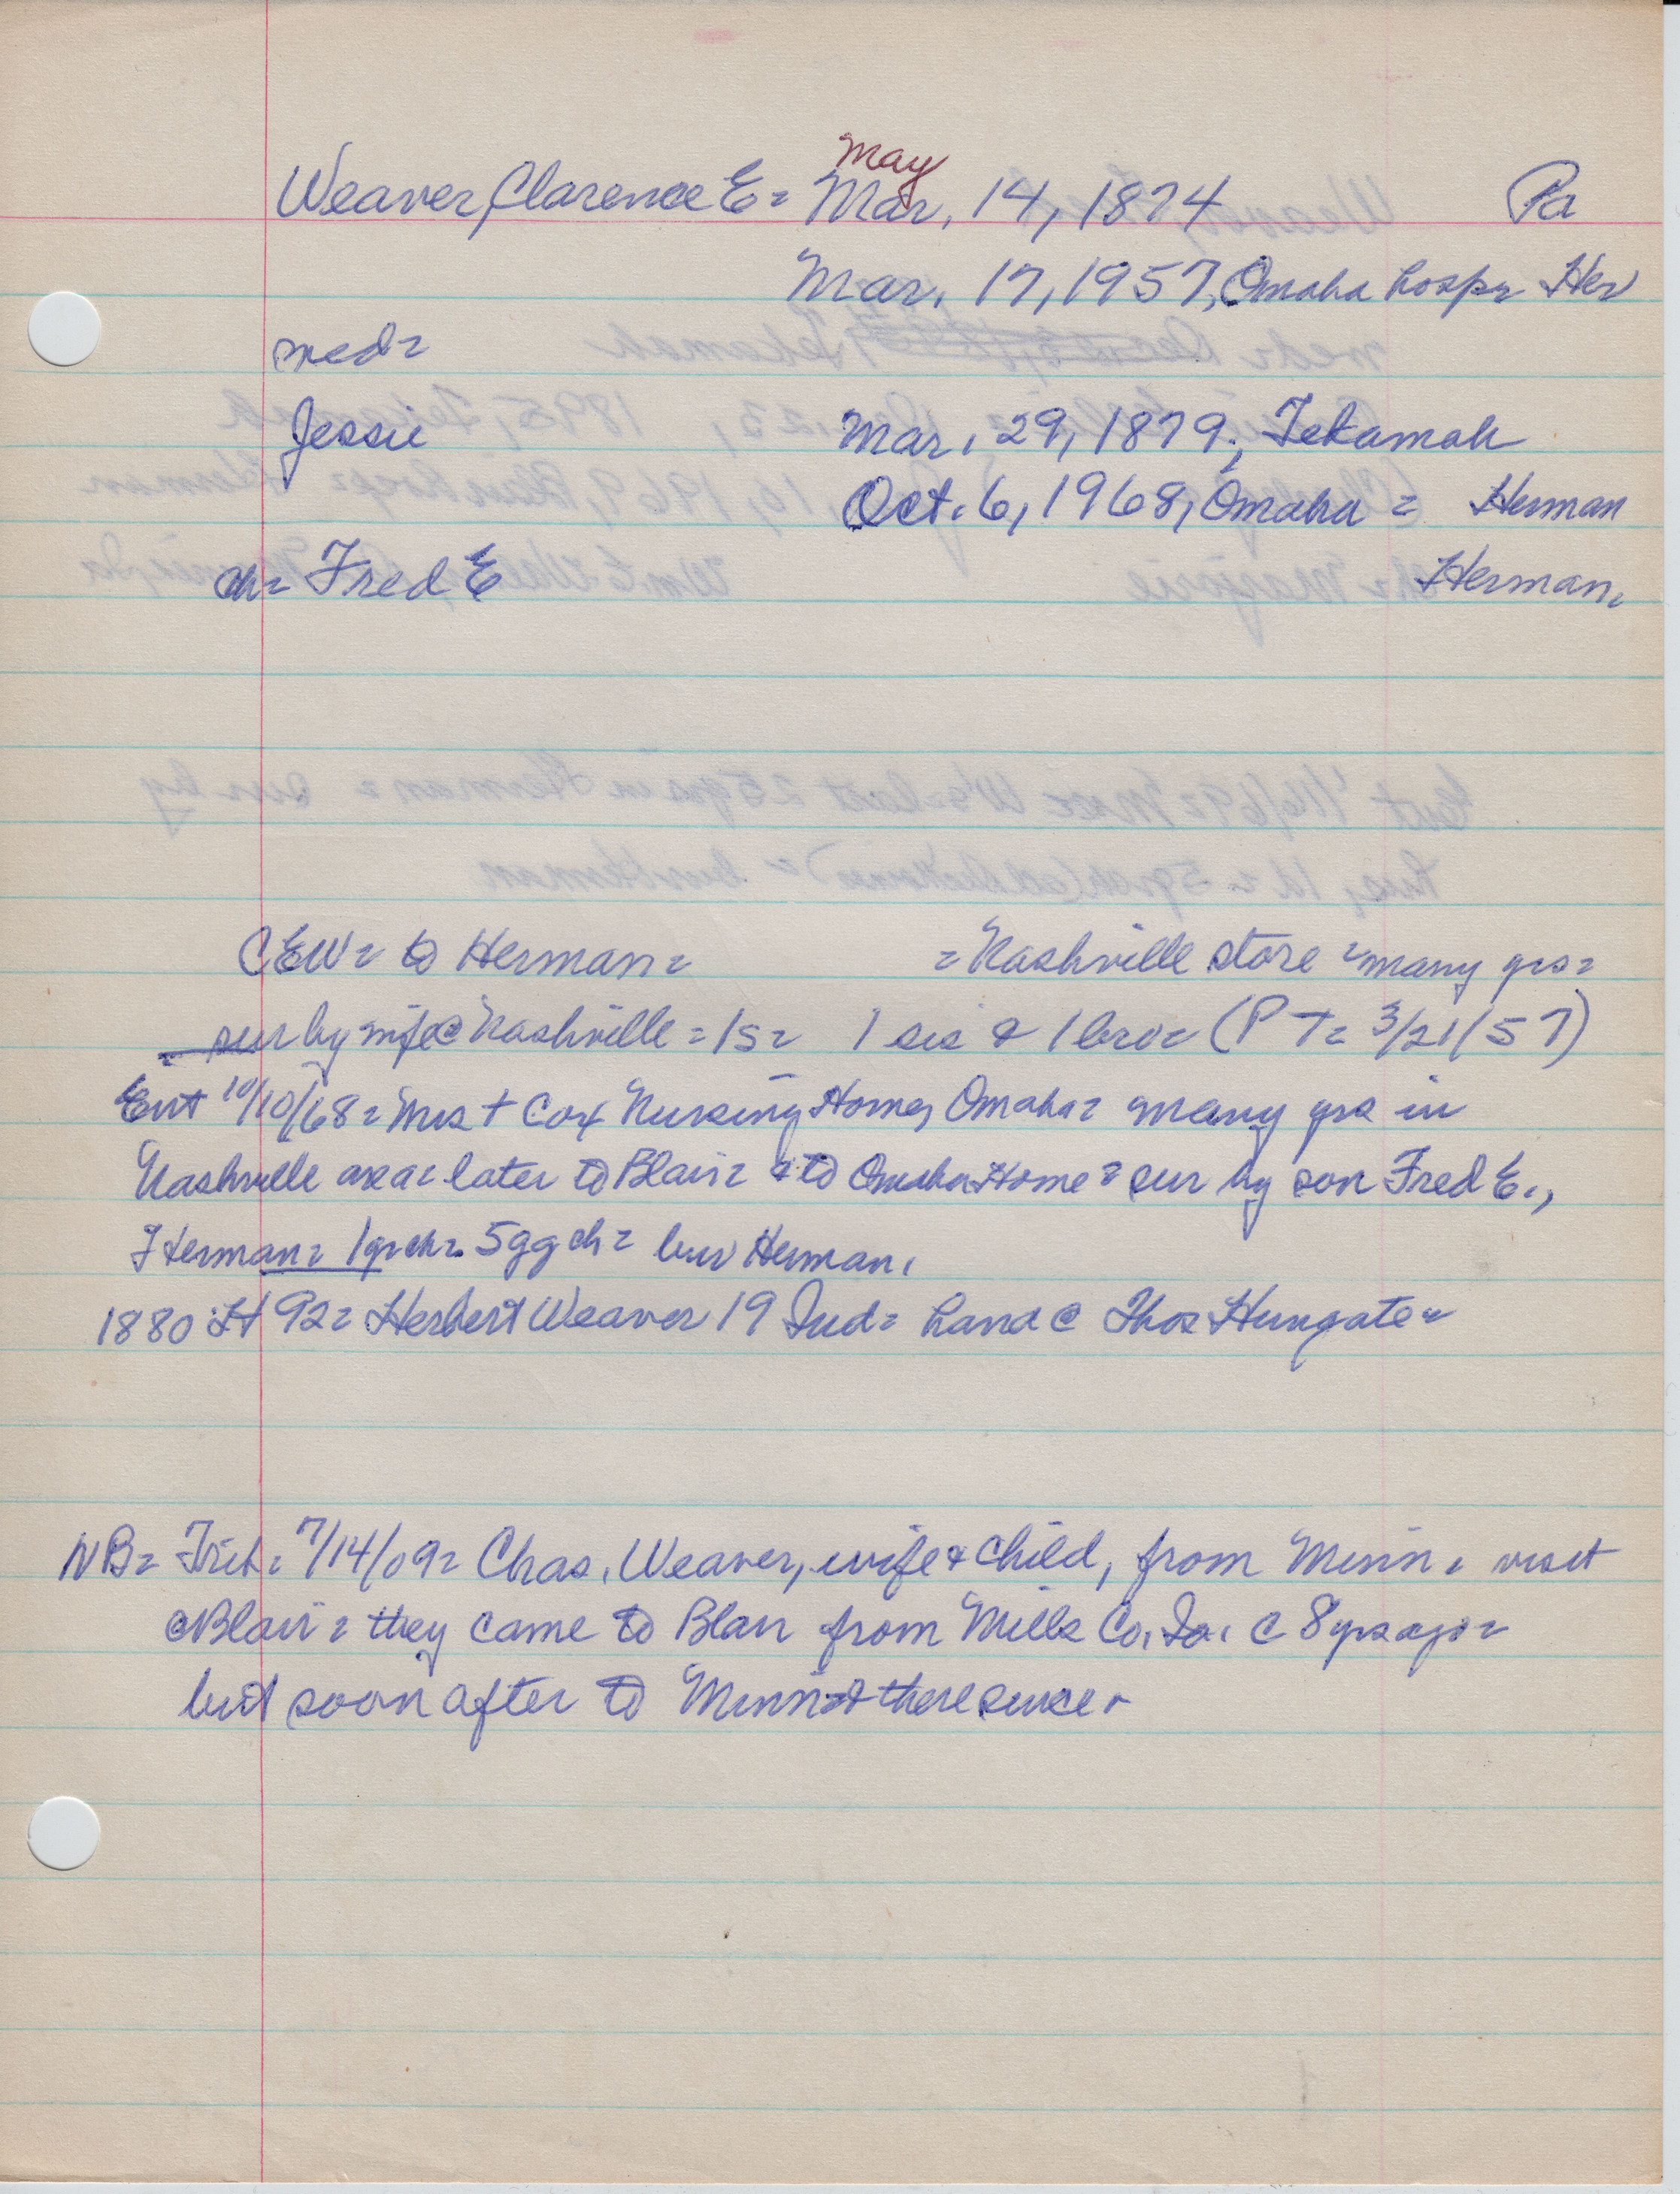 May
Weaver, Clarence E = Mar. 14, 1874 Pa
Mar. 17, 1957, Omaha hosp = Her
med =
Jessie Mar. 29, 1879, Tekamah
Oct. 6, 1968, Omaha = Herman
ch = Fred E Herman =
CEW = to Herman = = Nashville store = many yrs =
sur by wife @ Nashville = 1s = 1 sis & 1 bro = (PT = 3/21/57)
Ent 10/10/68 = Mrs + Cox Nursing Home, Omaha = many yrs in
Nashville area = later to Blair = & to Omaha Home = sur by son Fred E.,
Herman = 1 grch = 5 gg ch = bur Herman.
1880 Ft 92 = Herbert Weaver 19 Ind = hand @ Thos Hungate =
NB = Trib = 7/14/09 = Chas. Weaver, wife & child, from Minn. visit
@ Blair = they came to Blair from Mills Co. Ia. c 8 yrs ago =
but soon after to Minn = & there since =